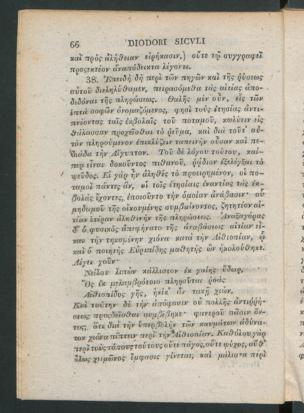 66 DIODORI SICVLI
καὶ πρὸς ἀλήθειαν εἰρήκασιν,) οὔτε τῷ συγγραφεῖ
προςεκτέον ἀναπόδεικτα λέγοντι.
38. Ἐπειδὴ δὲ περὶ τῶν πηγῶν καὶ τῆς ῥύσεως
αὐτοῦ διεληλύθαμεν, πειρασόμεθα τὰς αἰτίας ἀπο-
διδόναι τῆς πληρώσεως. Θαλῆς μὲν οὖν, εἷς τῶν
ἑπτὰ σοφῶν ὀνομαζόμενος, φησὶ τοὺς ἐτησίας ἀντι-
πνέοντας ταῖς ἐκβολαῖς τοῦ ποταμοῦ, κωλύειν εἰς
θάλασσαν προχεῖσθαι τὸ ῥεῦμα, καὶ διὰ τοῦτ' αὐ-
τὸν πληρούμενον ἐπικλύζειν ταπεινὴν οὖσαν καὶ πε-
διάδα τὴν Αἴγυπτον. Τοῦ δὲ λόγου τούτου, καί-
περ εἶναι δοκοῦντος πιθανοῦ, ῥᾴδιον ἐξελέγξαι τὸ
ψεῦδος. Εἰ γὰρ ἦν ἀληθὲς τὸ προειρημένον, οἱ πο-
ταμοὶ πάντες ἄν, οἱ τοῖς ἐτησίαις ἐναντίας τὰς ἐκ-
βολὰς ἔχοντες, ἐποιοῦντο τὴν ὁμοίαν ἀνάβασιν· οὗ
μηδαμοῦ τῆς οἰκουμένης συμβαίνοντος, ζητητέον αἰ-
τίαν ἑτέραν ἀληθινὴν τῆς πληρώσεως. Ἀναξαγόρας
δ' ὁ φυσικὸς ἀπεφήνατο τῆς ἀναβάσεως αἰτίαν εἶ-
ναι τὴν τηκομένην χιόνα κατὰ τὴν Αἰθιοπίαν, ᾧ
καὶ ὁ ποιητὴς Εὐριπίδης μαθητὴς ὢν ἠκολούθηκε.
Λέγει γοῦν·
Νείλου λιπὼν κάλλιστον ἐκ γαίης ὕδωρ,
Ὃς ἐκ μελαμβρότοιο πληροῦται ῥοὰς
Αἰθιοπίδος γῆς, ἡνίκ' ἂν τακῇ χιών.
Καὶ ταύτην δὲ τὴν ἀπόφασιν οὐ πολλῆς ἀντιῤῥή-
σεως προςδεῖσθαι συμβέβηκε· φανεροῦ πᾶσιν ὄν-
τος, ὅτι διὰ τὴν ὑπερβολὴν τῶν καυμάτων ἀδύνα-
τον χιόνα πίπτειν περὶ τὴν Αἰθιοπίαν. Καθόλου γὰρ
περὶ τοὺς τόπους τούτους οὔτε πάγος, οὔτε ψύχος, οὔθ'
ὅλως χειμῶνος ἔμφασις γίνεται, καὶ μάλιστα περὶ